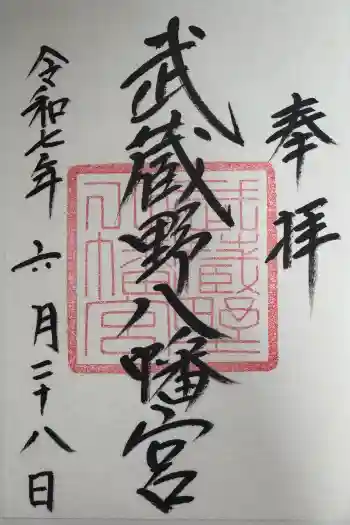 奉拝
武蔵野八幡宮
武蔵野八幡宮
令和七年六月二十八日